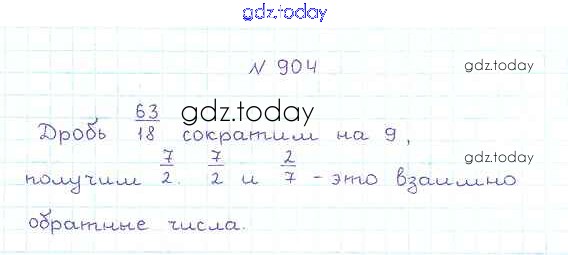 gdz.today
N 904 gdz.today
Дробь 63/18 gdz.today сократим на 9,
получим 7/2. 7/2 и 2/7 - это взаимно gdz.today
обратные числа.